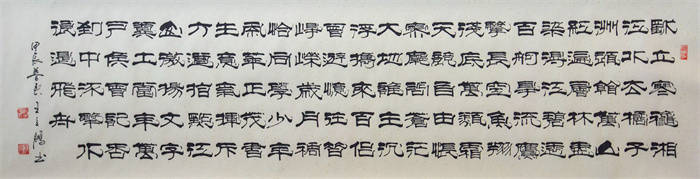 獨立寒穐湘
江北去橘子
洲頭看萬山
紅遍層林盡
染漫江碧透
百舸爭流鷹
擊長空魚翔
淺底萬類霜
天競自由悵
寥廓問蒼茫
大地誰主沉
浮攜來百侶
曾遊憶往昔
崢嶸歲月稠
恰同學少年
風華正茂書
生意氣揮斥
方遒指點江
山激揚文字
糞土當年萬
戶侯曾記否
到中流擊水
浪遏飛舟
甲辰 書